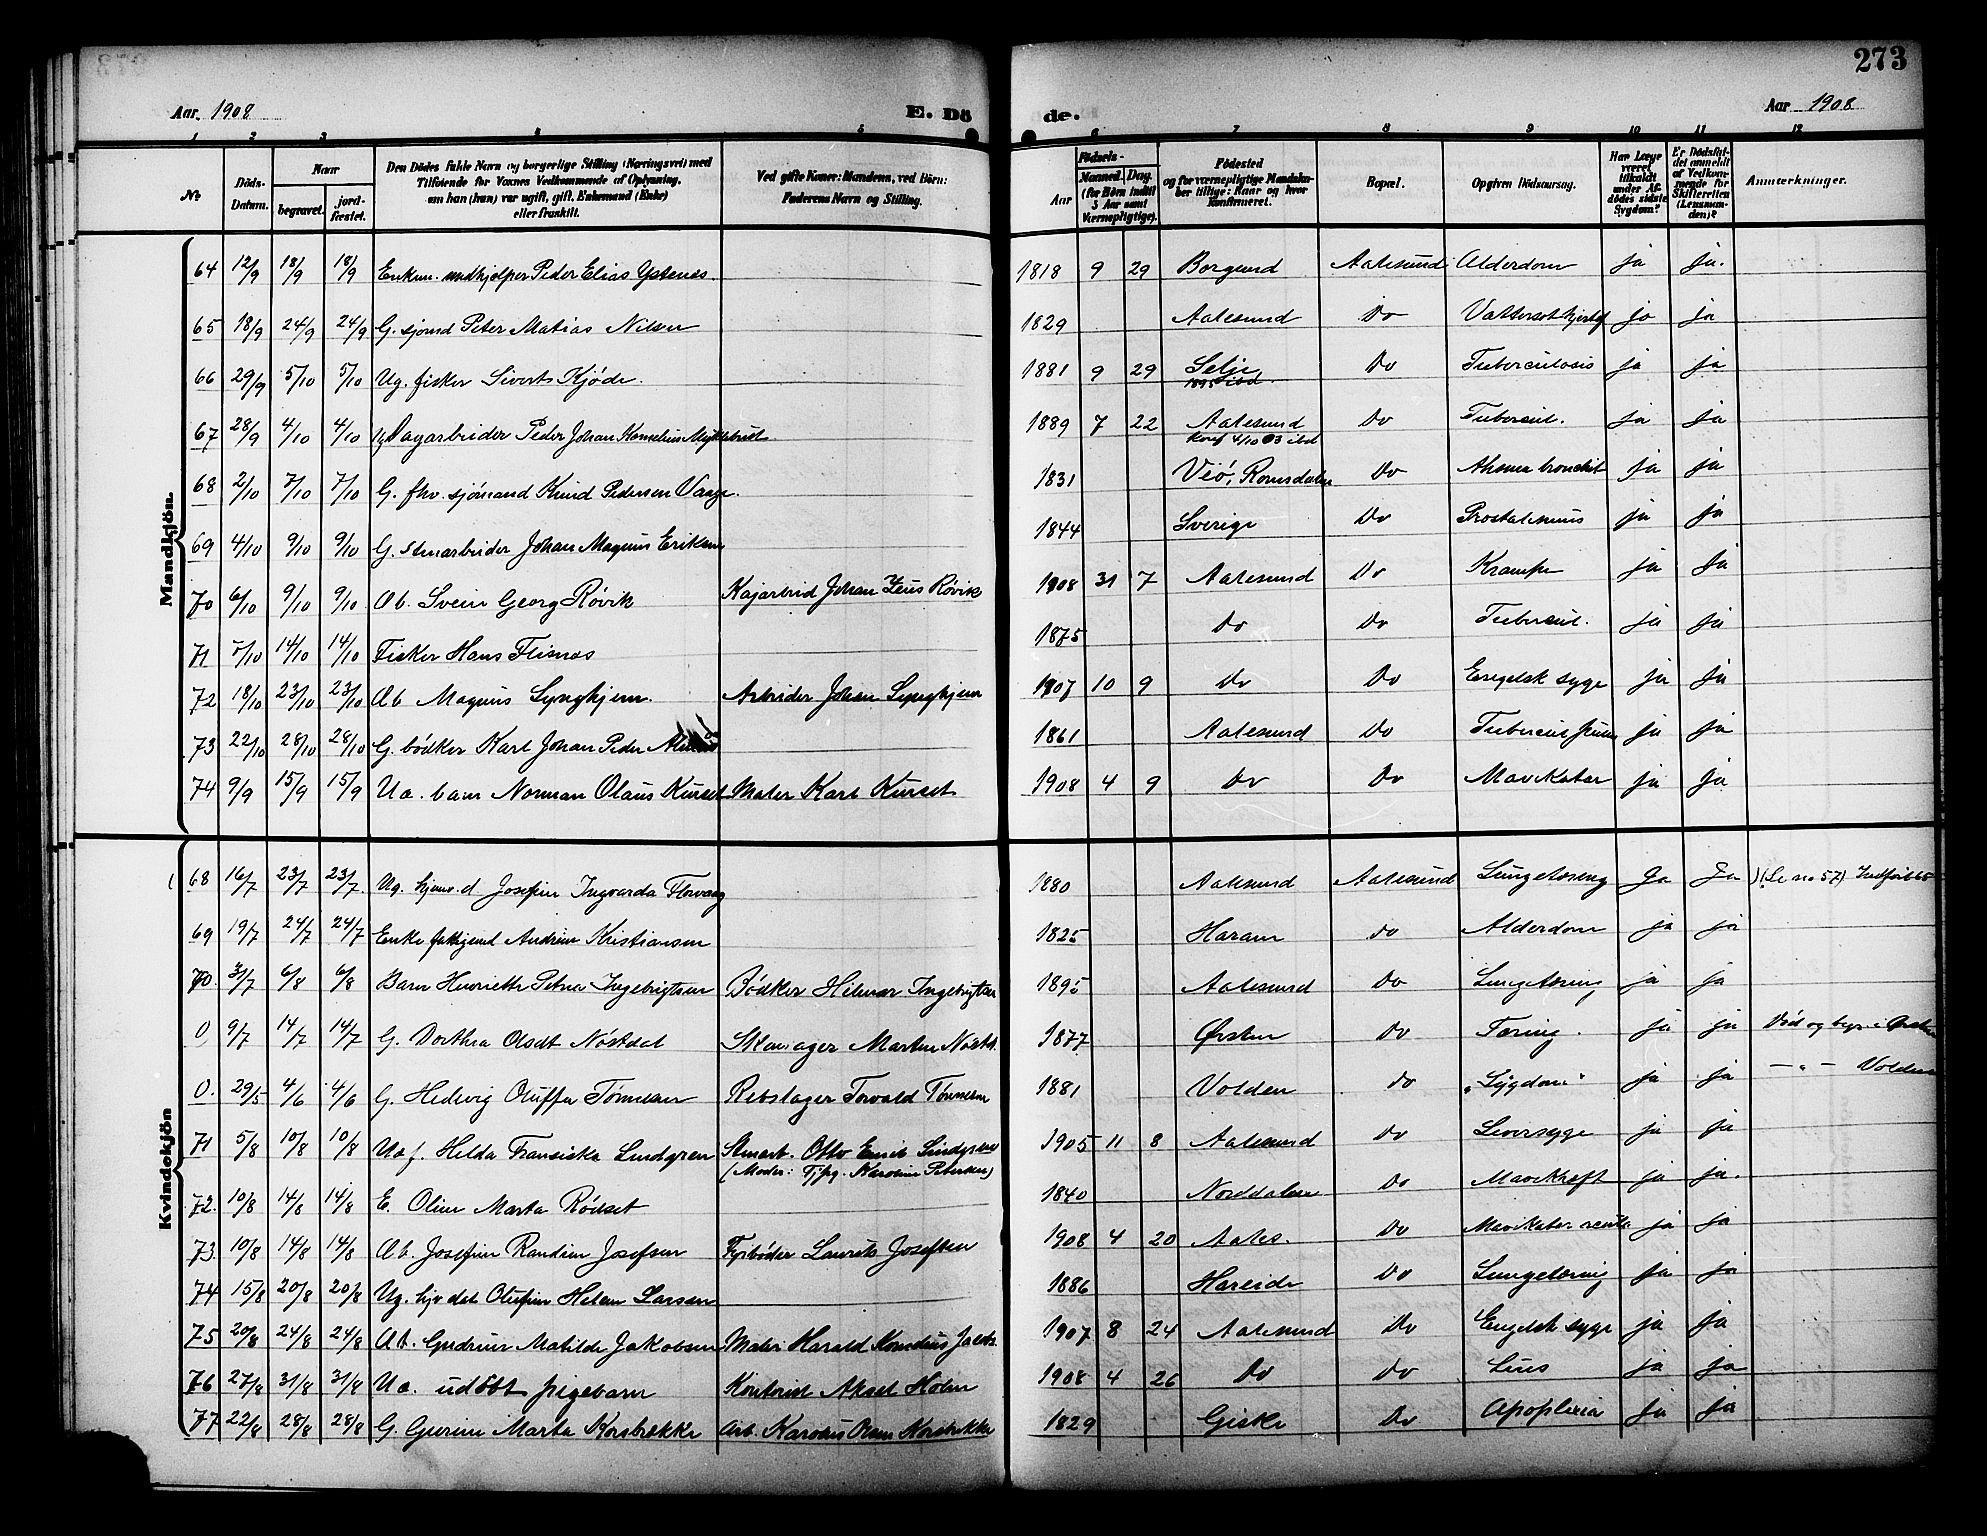 273
Aar 1908 E. Dö de. Aar 1908
1 2 3 4 5 6 7 8 9 10 11 12
No
Döds-Datum.
Naar
begravet.
jord-fæstet.
Den Dödes fulde Navn og borgerlige Stilling (Næringsvei) med
Tilföiende for Voxnes Vedkommende af Oplysning,
om han (hun) var ugift, gift, Enkemand (Enke)
eller fraskilt.
Ved gifte Koner: Mandens, ved Börn:
Faderens Navn og Stilling.
Födsels-
Aar
Maaned. Dag.
(for Börn indtil
5 Aar samt
Værnepligtige).
Födested
og for værnepligtige Mandska-
ber tillige: Naar og hvor
konfirmeret.
Bopæl.
Opgiven Dödsaarsag.
Har Læge
været
tilkaldt
under Af-
dödes sidste
Sygdom?
Er Dödsfal-
det anmeldt
af Vedkom-
mende for
Skifteretten
(Lensman-
den)?
Anmærkninger.
Mandkjön
64 12/9 18/9 18/9 Enkem. Peder Elias Ystenes 1818 9 29 Borgund Aalesund Alderdom ja ja.
65 18/9 24/9 24/9 G. sjømd Peter Matias Nilsen 1829 Aalesund Do ja ja
66 29/9 5/10 5/10 Ug. fisker Siverts Kjøde. 1881 9 29 Selje Do Tuberculosis ja ja
67 28/9 4/10 4/10 Ug Dagarbeider Peder Johan Kornelius Myklebust 1889 7 22 Aalesund Do Tubercul. ja ja
Konf 4/10 03 ibd
68 2/10 7/10 7/10 G. fhv. sjömand Knud Pedersen Vaage. 1831 Veö, Romsdalen Do bronchit ja ja
69 4/10 9/10 9/10 G. stenarbeider Johan Magnus Eriksen 1844 Sverige Do ja ja
70 6/10 9/10 9/10 Ab. Svein Georg Røvik Kajarbeid Johan Jens Røvik 1908 31 7 Aalesund Do Krampe ja ja
71 7/10 14/10 14/10 Fisker Hans Flisnes 1875 Do Do Tubercul. ja ja
72 18/10 23/10 23/10 Ab Magnus Lynghjem. Arbeider Johan Lynghjem 1907 10 9 Do Do Engelsk syge ja ja
73 22/10 28/10 28/10 G. bödker Karl Johan Peder 1861 Aalesund Do Tubercul ja ja
74 9/9 15/9 15/9 Ua. barn Norman Olaus Kurset Maler Karl Kurset 1908 4 9 Do Do Mavekatar ja ja
Kvindekjön
68 16/7 23/7 23/7 Ug. hjemv.d Josefine Ingvarda Flovaag 1880 Aalesund Aalesund Lungetæring Ja Ja (Se no 57) Indført 65
69 19/7 24/7 24/7 Enke fattigund Andrine Kristiansen 1825 Haram do Alderdom ja ja
70. 31/7 6/8 6/8 Barn Henriette Petra Ingebrigtsen Bödker Hilmar Ingebrigtsen 1895 Aalesund Do Lungetæring ja ja
0 9/7 14/7 14/7 G. Dorthea Olsdt Nöstdal Skomager Martin Nöstd. 1877 Ørsten Do Tæring. ja ja Död og begr. i Ørsten
0. 29/5 4/6 4/6 G. Hedevig Oluffa Tönnesen Rebslager Torvald Tönnesen 1881 Volden do "Sygdom" ja ja — " — Volden
71 5/8 10/8 10/8 Uaf. Helda Fransiska Lindgren Stenarb. Otto Emil Lindgren 1905 11 8 Aalesund do Leversyge ja ja
(Moder: Tjpg. Karoline Petersen)
72. 10/8 14/8 14/8 E. Oline Marta Rödset 1840 Norddalen Do Mavekræft ja ja.
73. 10/8 14/8 14/8 Ab. Josefine Randine Josefsen Fyrböder Laurits Josefsen 1908 4 20 Aales. Do Mavekatar ja ja
74 15/8 20/8 20/8 Ug. hjv dat Olufine Helene Larsen 1886 Hareide Do Lungetæring ja ja
75 20/8 24/8 24/8 Ab. Gudrun Matilde Jakobsen Maler Harald Kornelius Jacobs. 1907 8 24 Aalesund Do Engelsk syge ja ja
76 27/8 31/8 31/8 Ua. udöbt pigebarn Kontorist Aksel Holm 1908 4 26 Do Do Lues ja ja
77 22/8 28/8 28/8 G. Gurine Marta Korsbrekke Arb. Karolus Olsen Korsbrekke 1829 Giske Do Apoplexia ja ja